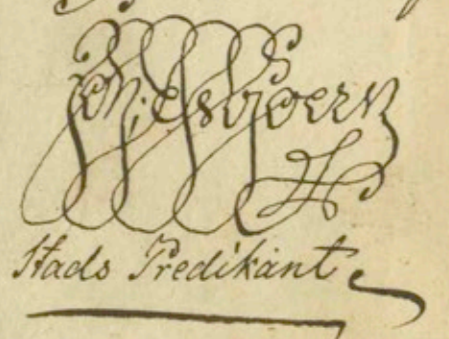 Esbjoern
Stads Predikant